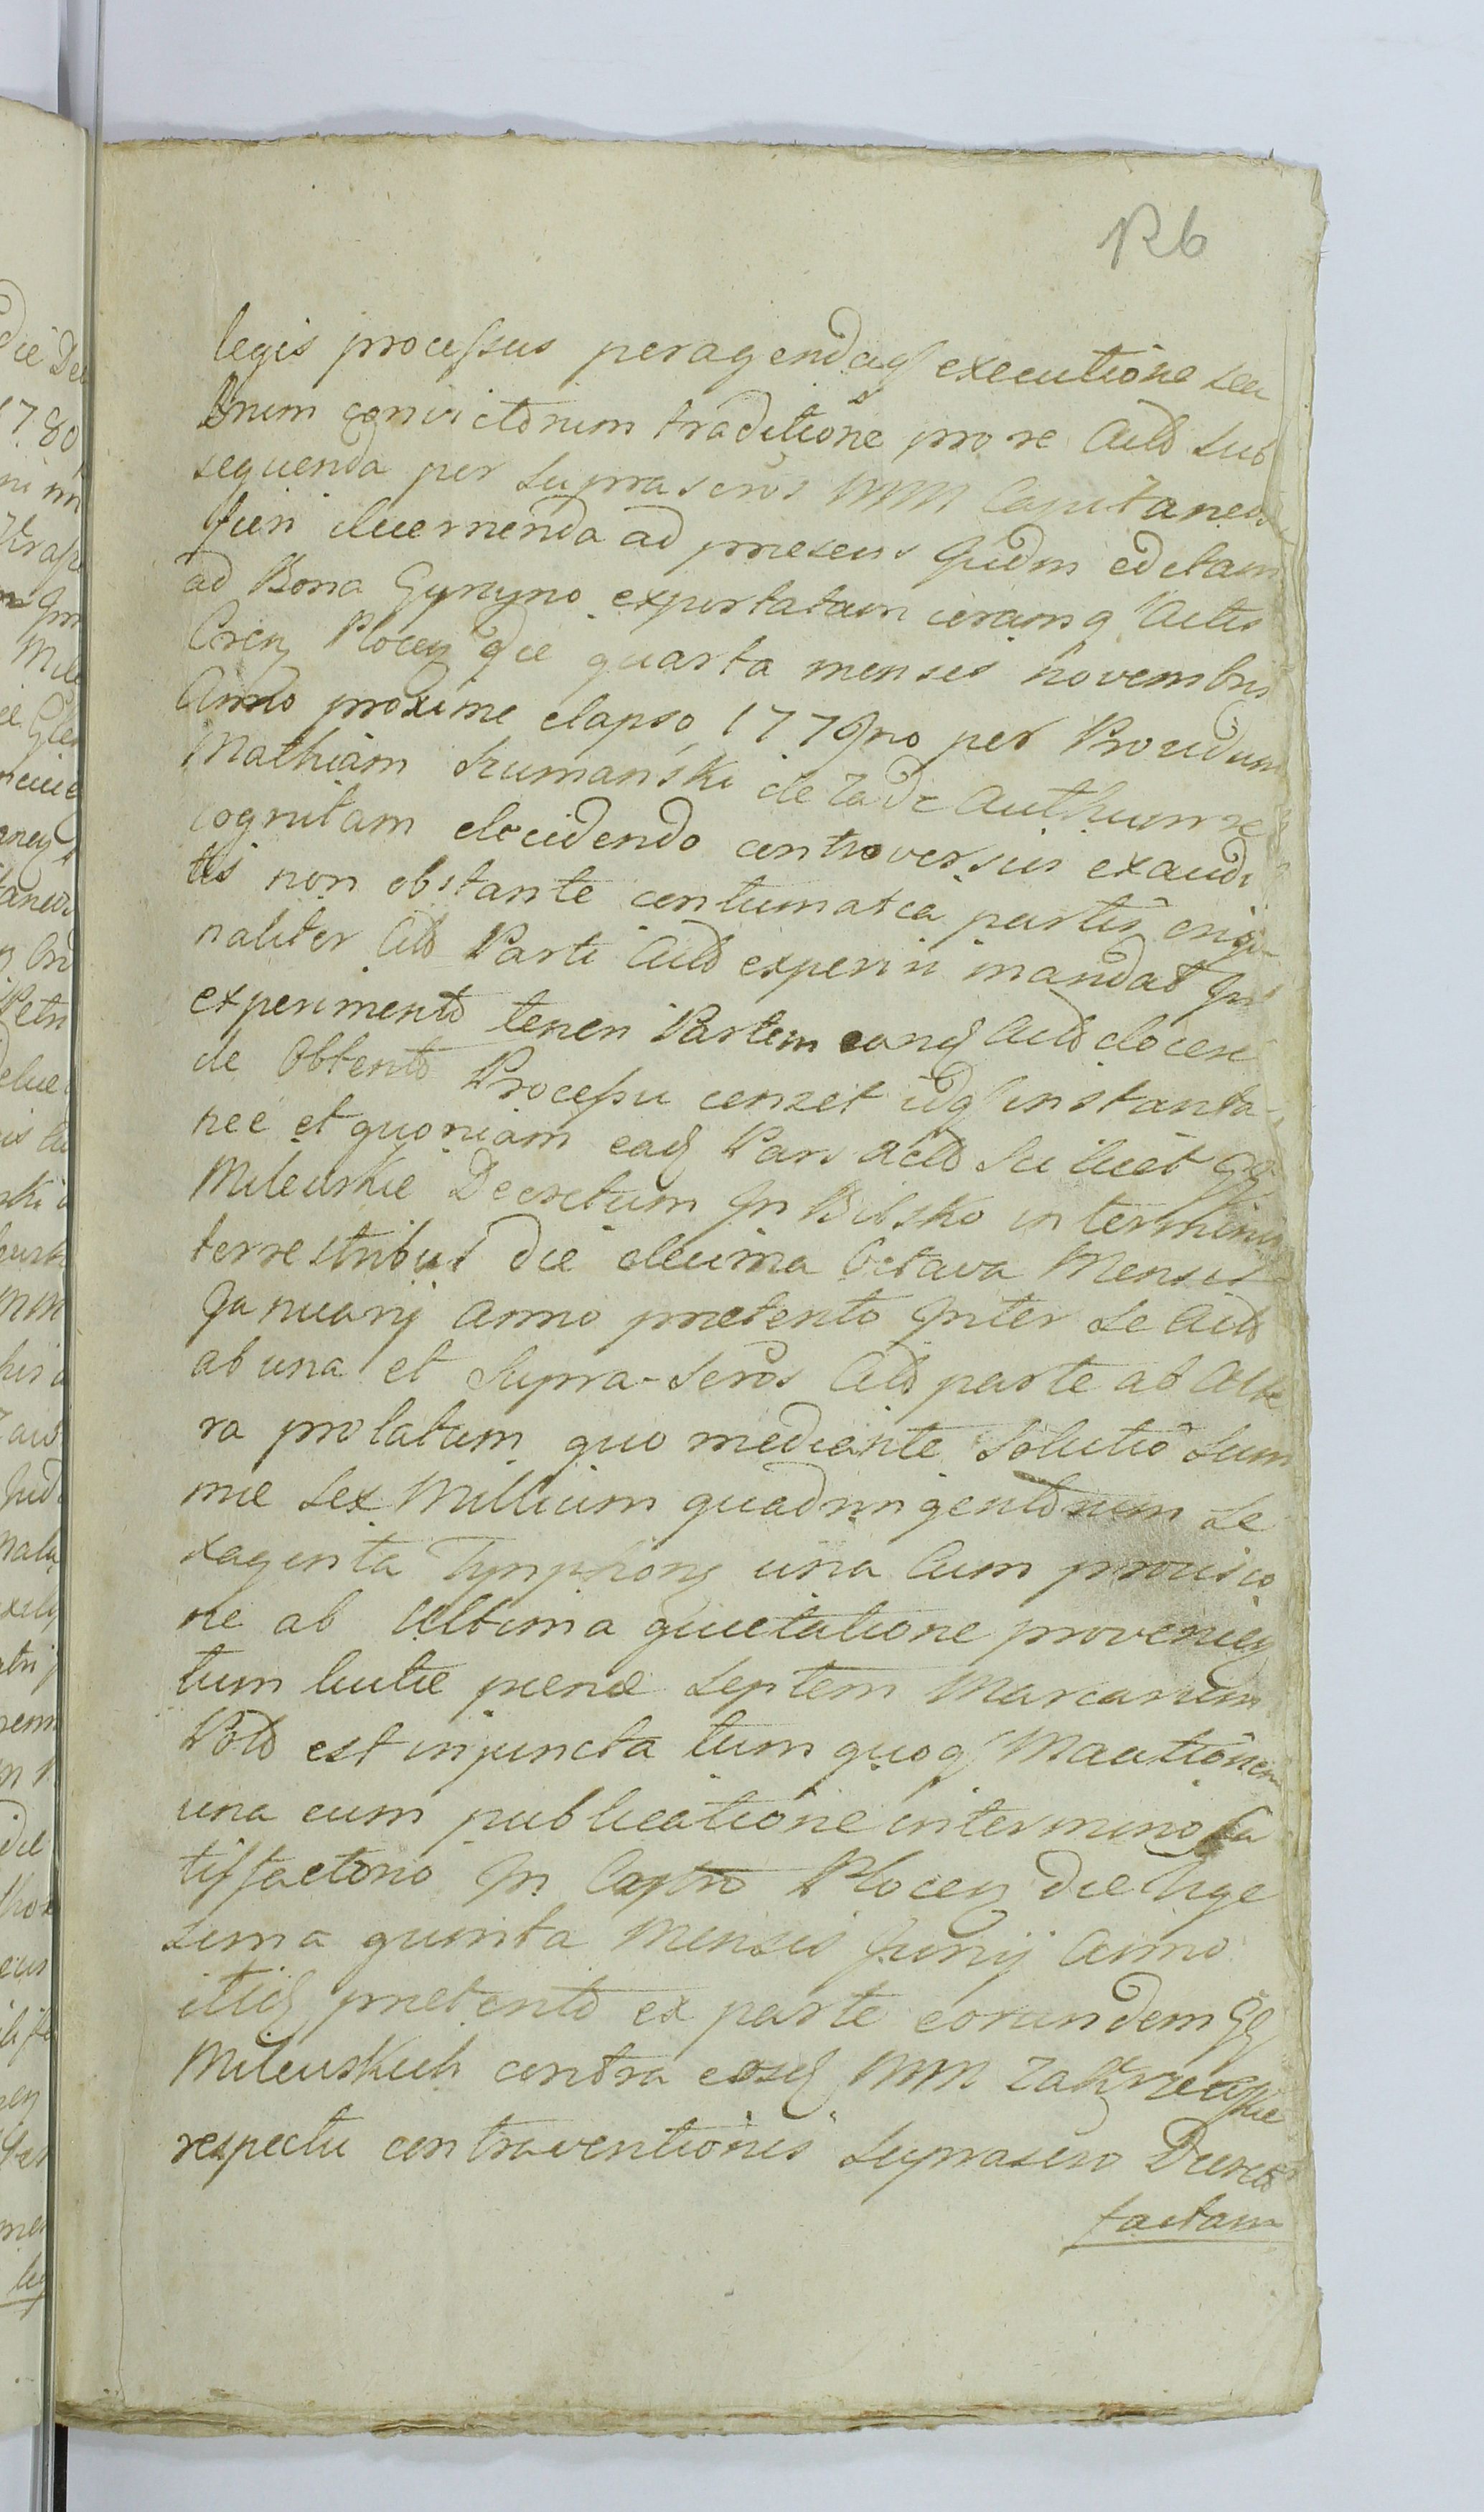 126
legis processus peragendaq executione seu
bnum convictorum traditione pro re Acto sub
sequenda per suprascros MM Capitaneos
fieri decernenda ad praesens Judm editam
ad Bona Gyzyno exportatam coramq Actis
Cren Plocen die quarta mensis novembris
Anno proxime elapso 1779no per Providum
Mathiam Szumanski de Authum re
cognitam decidendo controversiis exaudi
tis non obstante contumatia partis origi-
naliter Cito Parti Acto experiri mandat In
experimento teneri Partem eanq Acto docere
de Obtento Processu censet idq instanta-
nee et quoniam eadq Pars Acto Scilicet GG
Mileuskie Decretum In Bilsko in terminis
terrestribus die decima Octava Mensis
Januarij Anno praetento Inter se Acto
ab una et Supra-scros Cito parte ab Alte
ra prolatum quo mediante Solutio Sum
mae sex Millium quadringentorum se
xaginta Tynphon una Cum provisio
ne ab Ultima quietatione provenien
tum luitae paenae septem Marcarum
Polo est injuncta tum quoq
una cum publicatione in termino sa
tisfactorio In Castro Plocen die Vige
sima quinta Mensis Junij Anno
itidq praetento ex parte eorundem GG
Mileuskich contra eosdq MM Zakrzeuskie
respectu contraventionis suprascro Decreto
factam